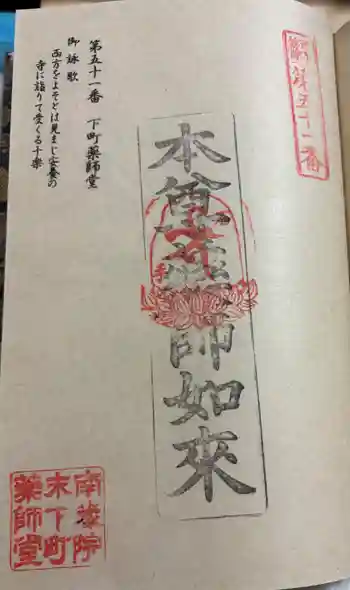 第五十一番
本尊藥師如來
第五十一番 下町薬師堂
御詠歌
西方をよそとは見まじ安養の
寺に詣りて受くる十楽
南蔵院
末下町
藥師堂